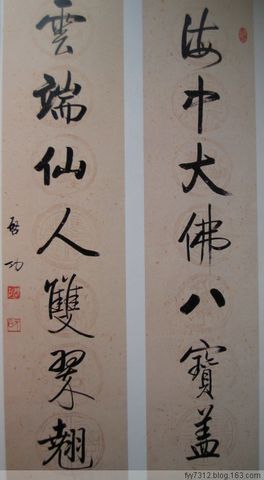 海中大佛八寶蓋
雲端仙人雙翠翹
啓功
fyy7312.blog.163.com